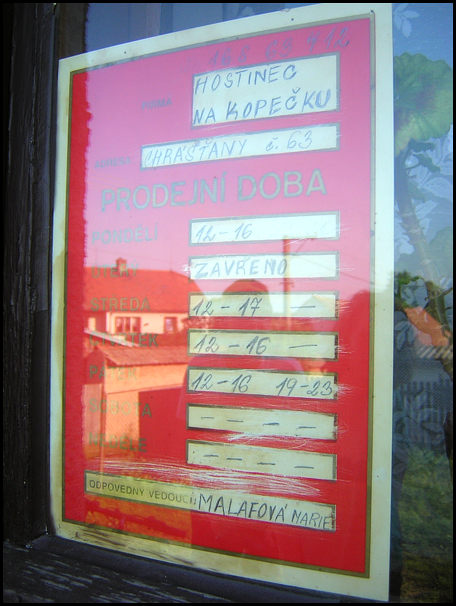 FIRMA HOSTINEC
NA KOPEČKU
ADRESA CHRÁŠŤANY č. 63
PRODEJNÍ DOBA
PONDĚLÍ 12-16
ÚTERÝ ZAVŘENO
STŘEDA 12-17 —
ČTVRTEK 12-16 —
PÁTEK 12-16 19-23
SOBOTA — — — —
NEDĚLE — — — —
ODPOVĚDNÝ VEDOUCÍ: MALAFOVÁ MARIE